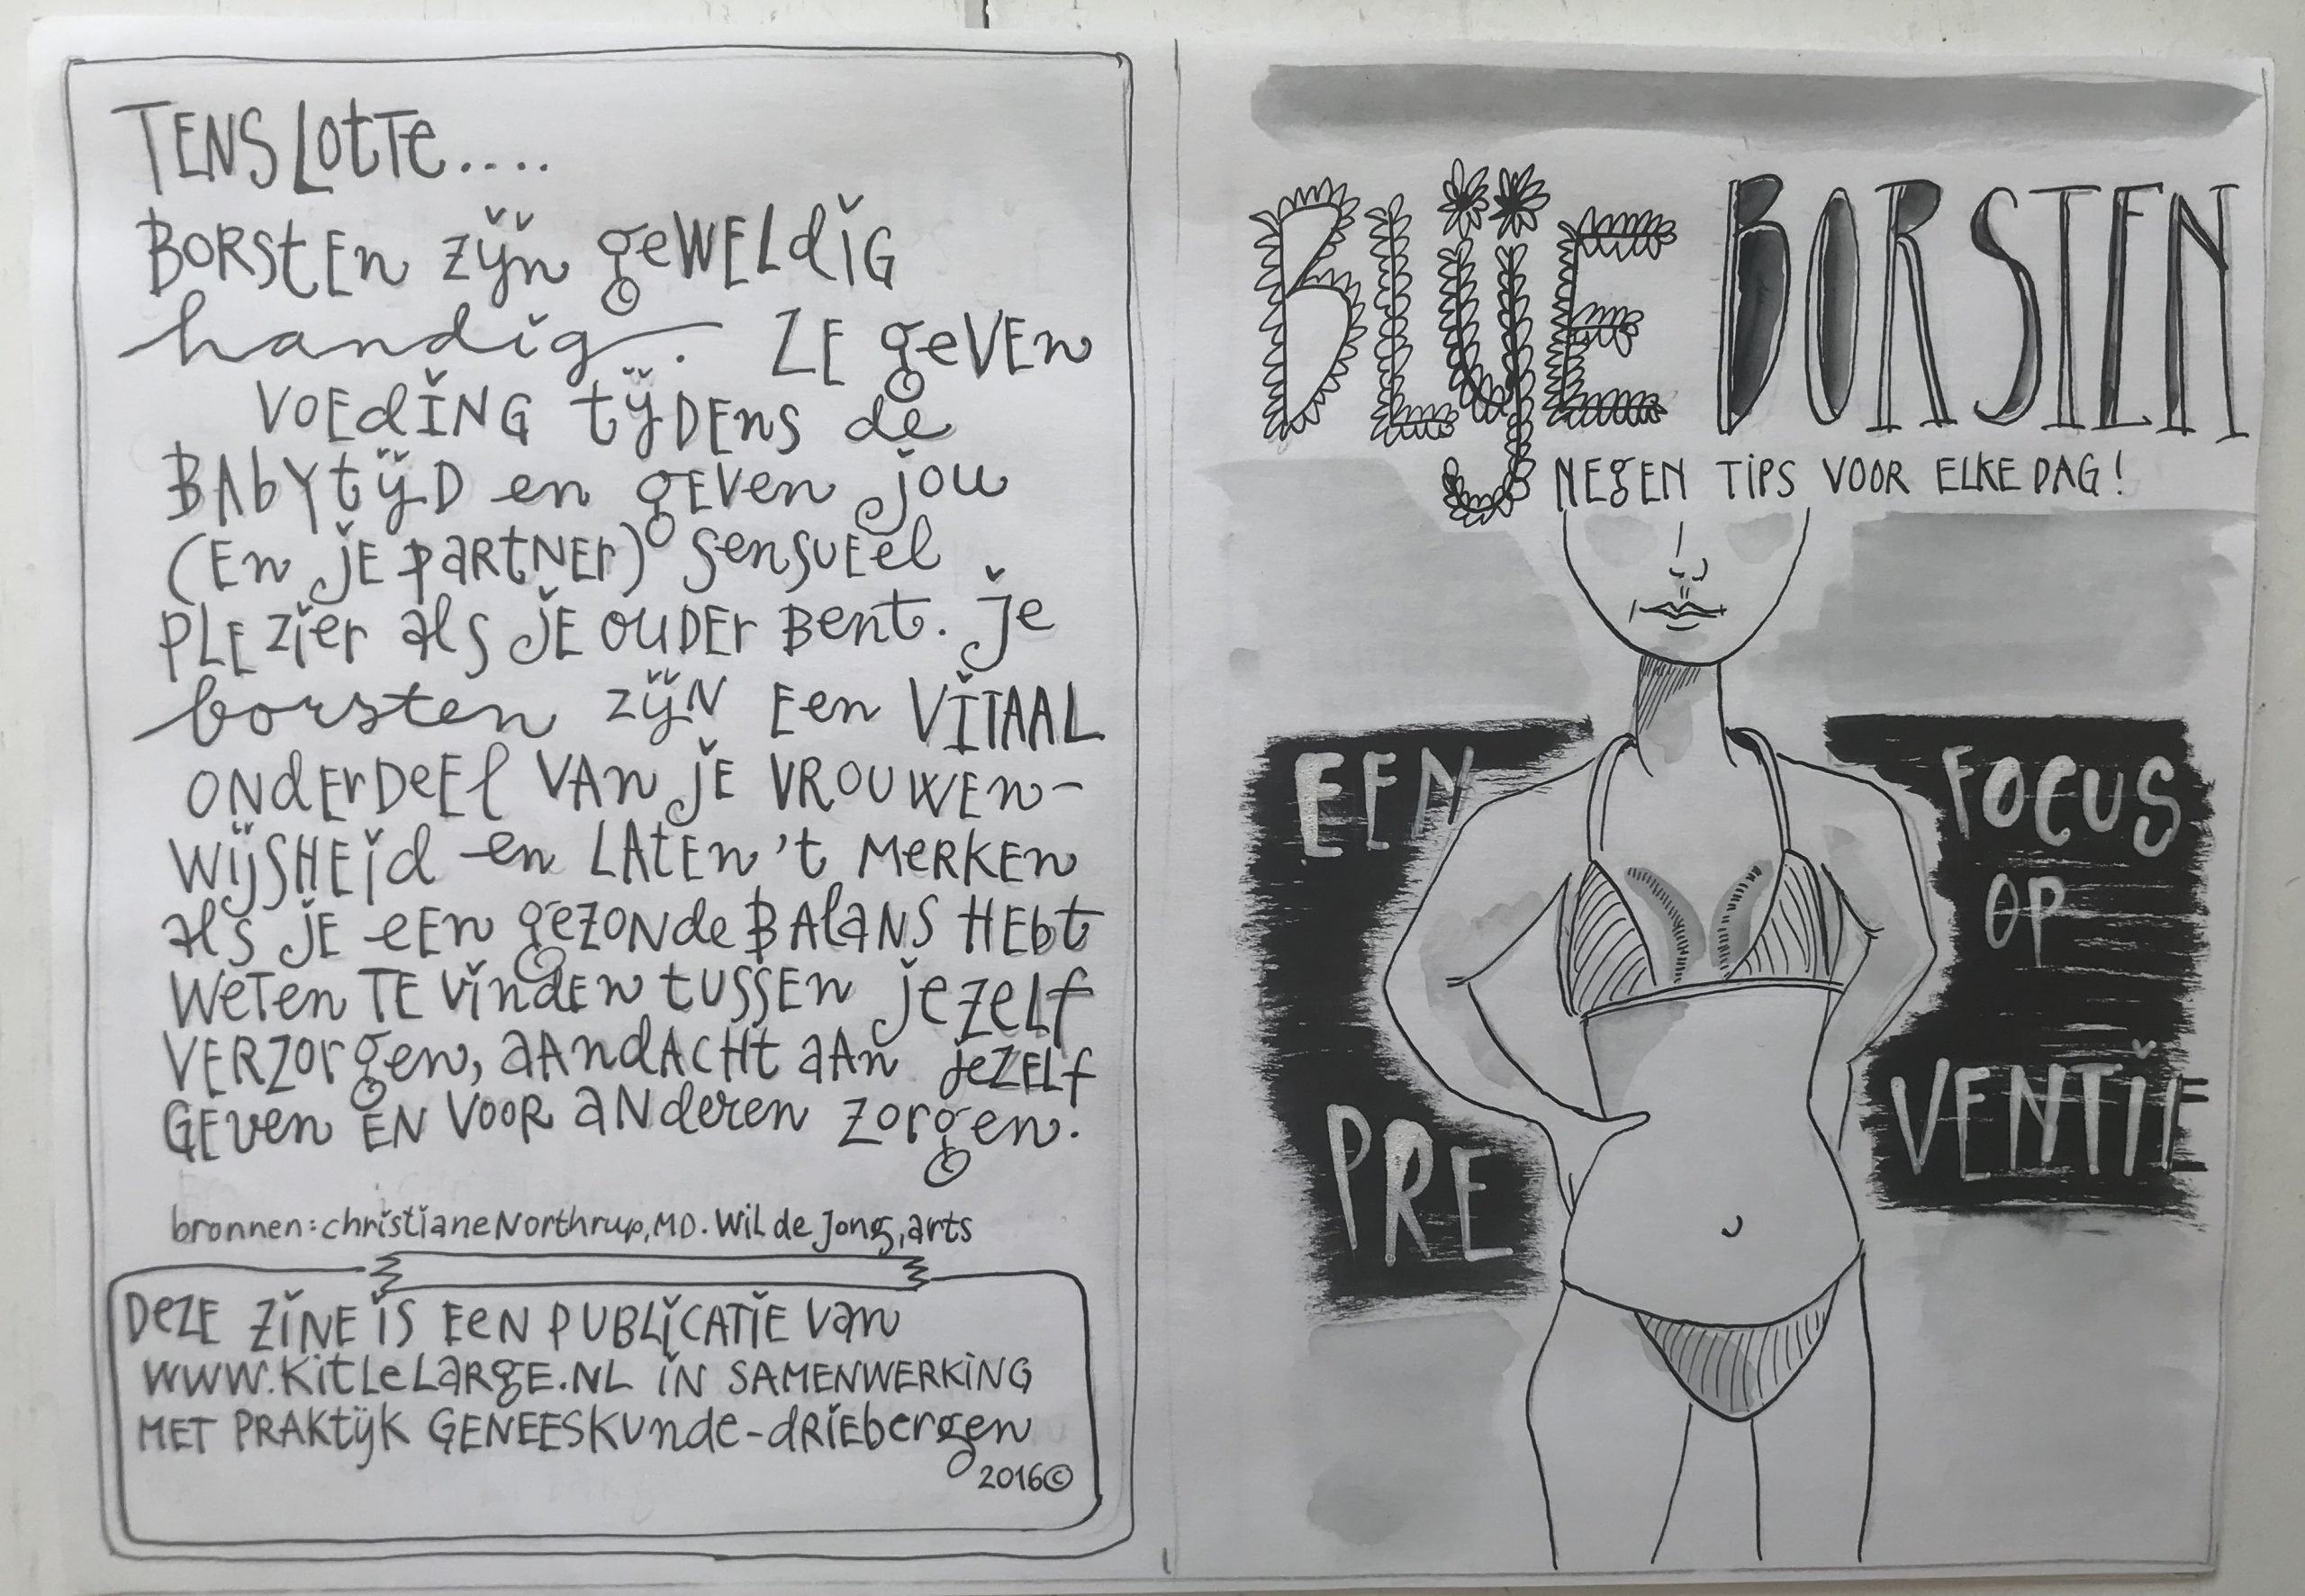 TENSLOTTE....
BORSTEN ZIJN GEWELDIG
handig. ZE GEVEN
VOEDING TIJDENS de
BABYTIJD en GEVEN JOU
(EN JE PARTNER) SENSUEEL
PLEZIER ALS JE OUDER BENT. JE
borsten ZIJN EEN VITAAL
ONDERDEEL VAN JE VROUWEN-
WIJSHEID en LATEN 't MERKEN
ALS JE EEN GEZONDE BALANS HEBT
WETEN TE VINDEN TUSSEN JEZELF
VERZORGEN, AANDACHT AAN JEZELF
GEVEN ÉN VOOR ANDEREN ZORGEN.
bronnen: christiane Northrup, MD. Wil de Jong, arts
DEZE ZINE IS EEN PUBLICATIE VAN
WWW.KITLELARGE.NL IN SAMENWERKING
MET PRAKTIJK GENEESKUNDE-DRIEBERGEN
2016©
BLIJE BORSTEN
NEGEN TIPS VOOR ELKE DAG!
EEN FOCUS
OP
PRE VENTIIE